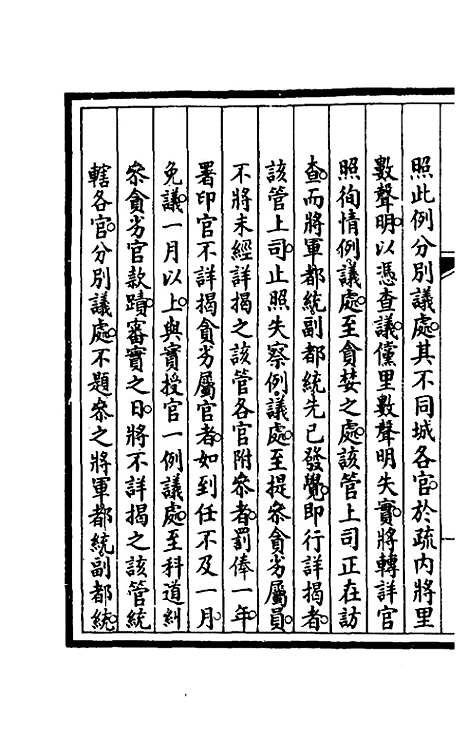 照此例分別議處其不同城各官於疏内將里
數聲明以憑查議儻里數聲明失實將轉詳官
照徇情例議處至貪婪之處該管上司正在訪
查而將軍都統副都統先已發覺即行詳揭者
該管上司止照失察例議處至提叅貪劣屬員
不將未經詳揭之該管各官附叅者罰俸一年
署印官不詳揭貪劣屬官者如到任不及一月
免議一月以上與實授官一例議處至科道糾
叅貪劣官款蹟審實之日將不詳揭之該管統
轄各官分別議處不題叅之將軍都統副都統